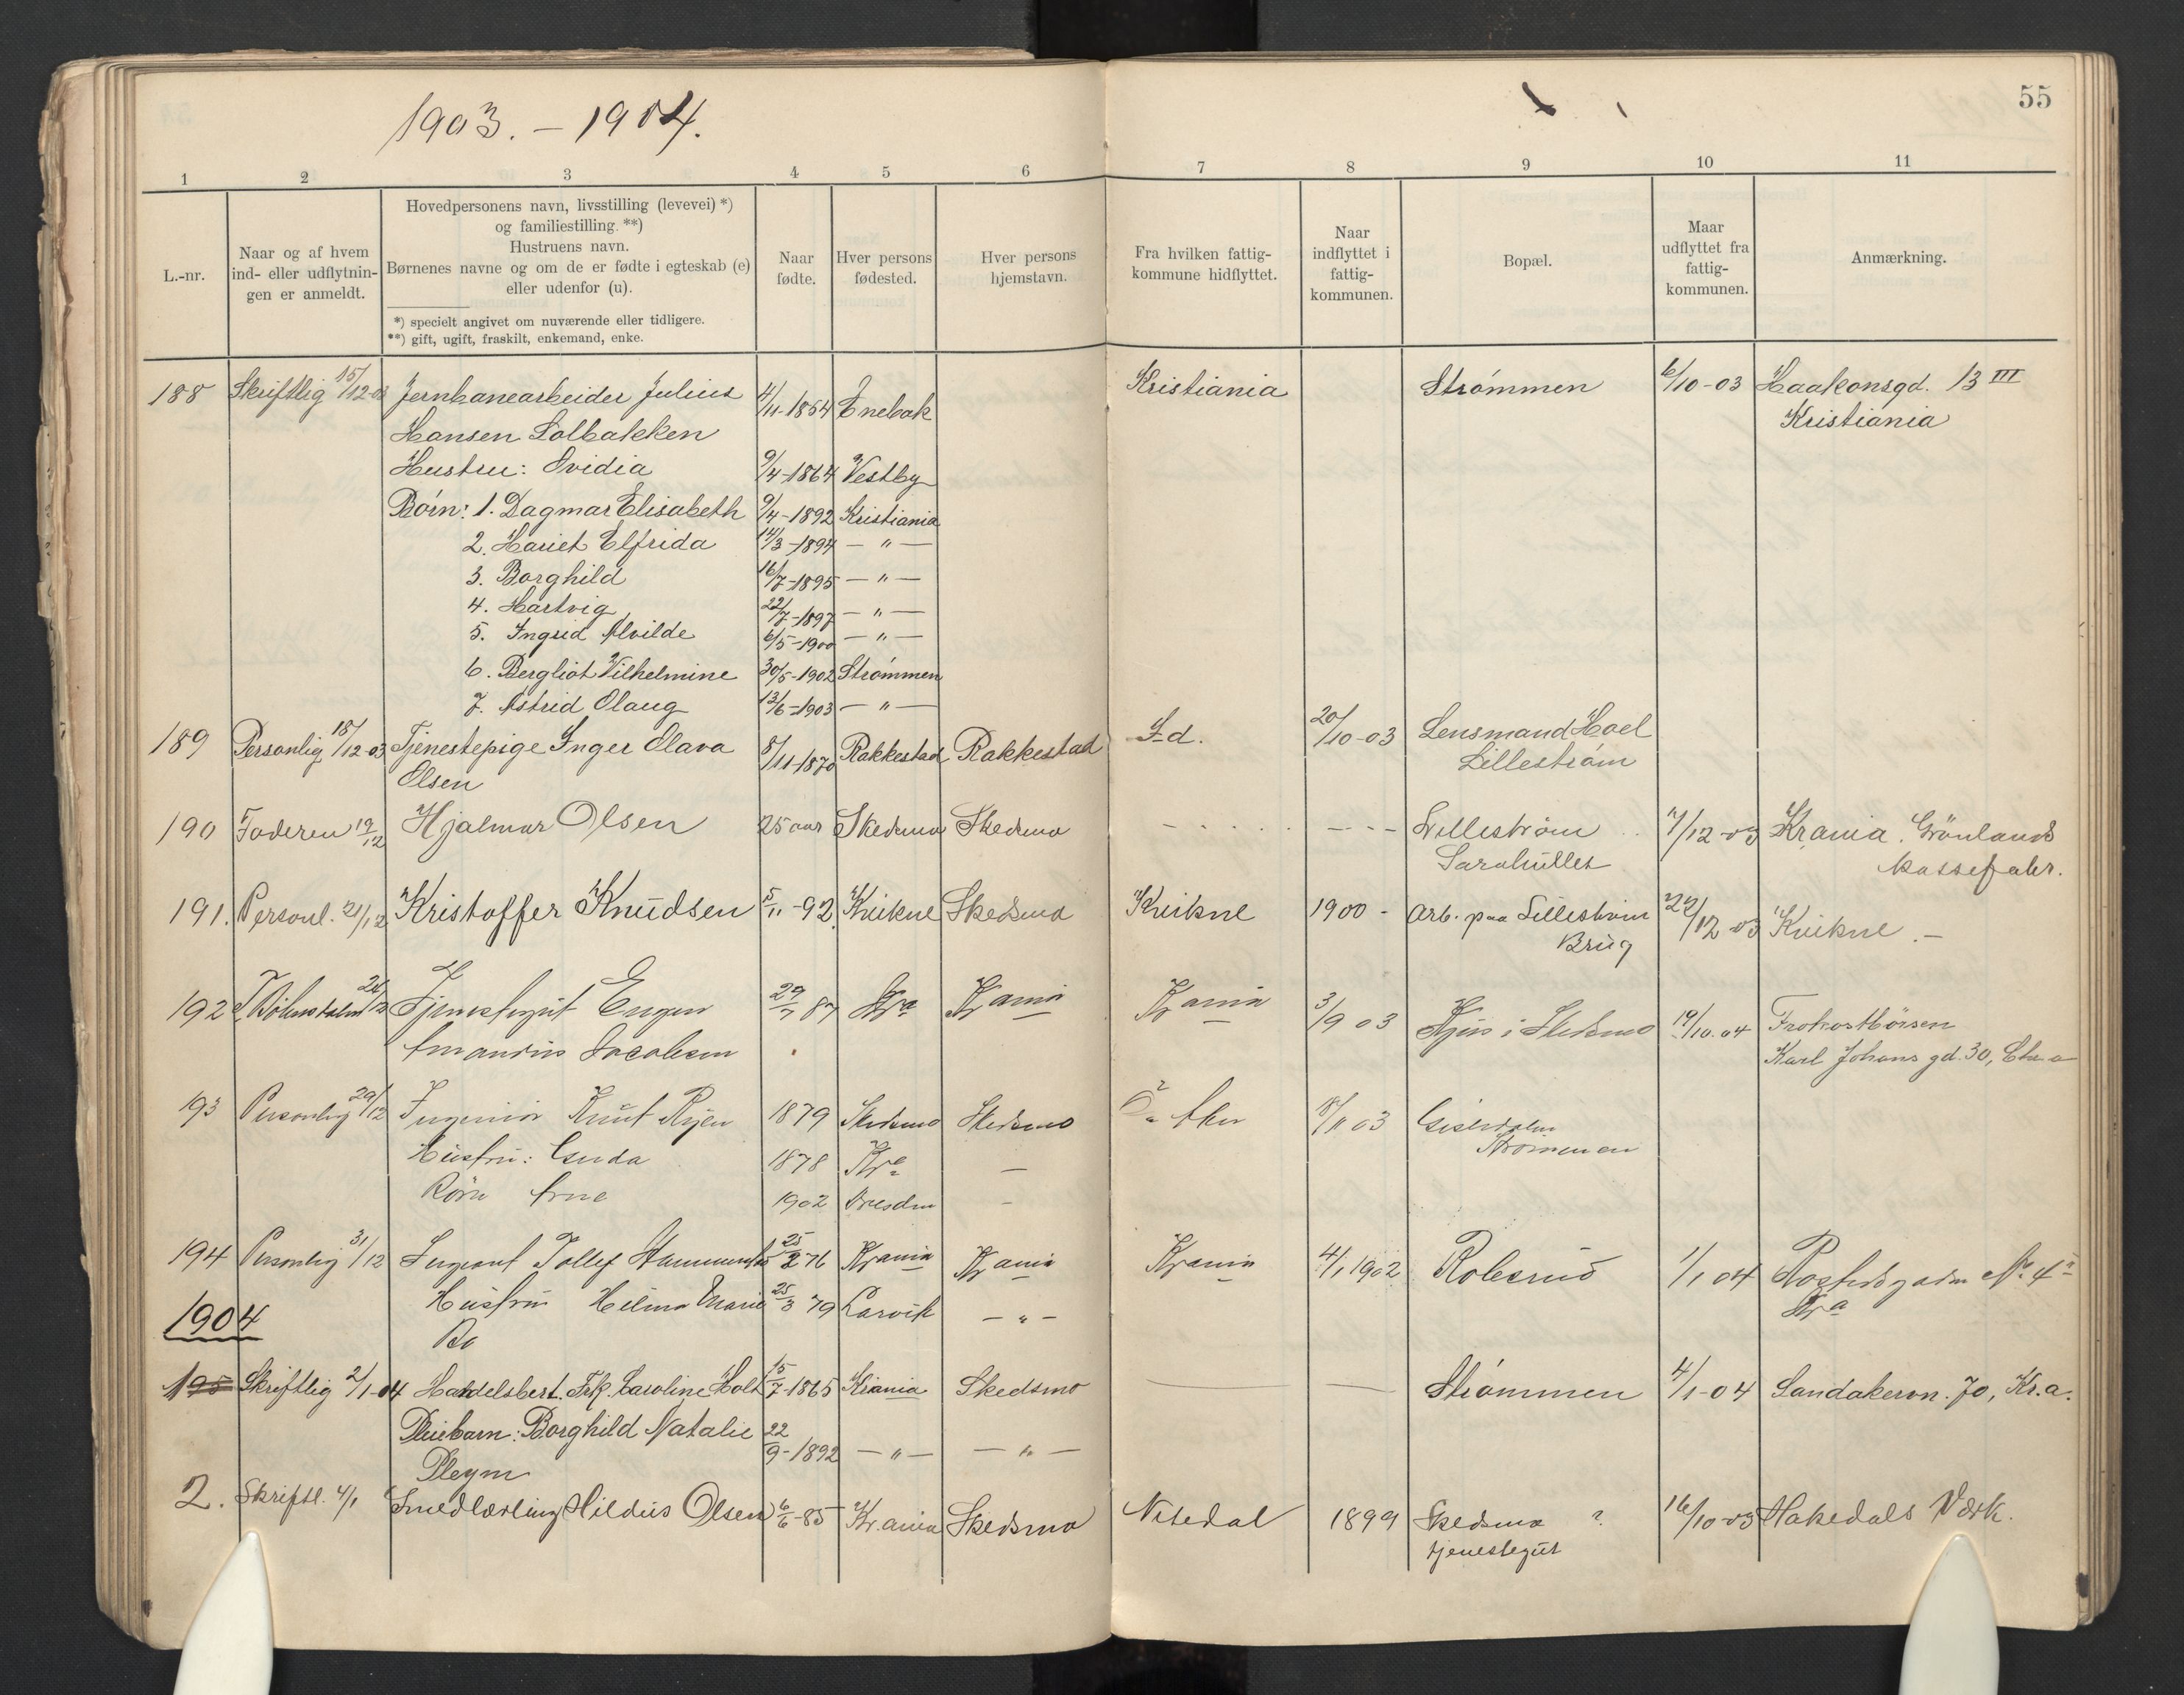 1903. – 1904.
55
1 2 3 4 5 6 7 8 9 10 11
L.-nr.
Naar og af hvem
ind- eller udflytnin-
gen er anmeldt.
Hovedpersonens navn, livsstilling (levevei) *)
og familiestilling. **)
Hustruens navn.
Børnenes navne og om de er fødte i egteskab (e)
eller udenfor (u).
*) specielt angivet om nuværende eller tidligere.
**) gift, ugift, fraskilt, enkemand, enke.
Naar
fødte.
Hver persons
fødested.
Hver persons
hjemstavn.
Fra hvilken fattig-
kommune hidflyttet.
Naar
indflyttet i
fattig-
kommunen.
Bopæl.
Maar
udflyttet fra
fattig-
kommunen.
Anmærkning.
188 Skriftlig 15/12-03 Jernbanearbeider Julius 4/11-1854 Enebak Kristiania Strømmen 6/10-03 Haakonsgd. 13 III
Hansen Solbakken Kristiania
Hustru: Ovidia 9/4-1864 Vestby
Børn: 1. Dagmar Elisabeth 9/4-1892 Kristiania
2. Hariet Elfrida 14/3-1894 — " —
3. Borghild 16/7-1895 — " —
4. Hartvig 22/7-1897 — " —
5. Ingrid Alvilde 6/5-1900 — " —
6. Bergliot Vilhelmine 30/5-1902 Strømmen
7. Astrid Olaug 13/6-1903 — " —
189 Personlig 18/12-03 Tjenestepige Inger Olava 8/11-1870 Rakkestad Rakkestad I-d. 20/10-03 Lensmand Hoel
Olsen Lillestrøm
190 Faderen 19/12 Hjalmar Olsen 25 aar Skedsmo Skedsmo - - - - - - - Lillestrøm 7/12-03 Krania. Grønlands
191. Personl. 21/12 Kristoffer Knudsen 5/11-92. Kvikne Skedsmo Kvikne 1900 - Arb. paa Lillestrøm 22/12-03 Kvikne. –
Brug
192 24/12 Tjenestegut Eugen 29/7 87 Kra Krania Krania 3/9 03 i Skedsmo 19/10.04 Frokostbørsen
Amandus Jacobsen Karl Johans gd. 30, Chr.a
193 Personlig 29/12 Ingeniør Knut Ryen 1879 Skedsmo Skedsmo Ø. Aker 18/11 03
Hustru: 1878 Kra — Strømmen
Børn Arne 1902 Dresden -
194 Personlig 31/12 Sergeant 25/2 76 Krania Krania Krania 4/1 1902 Robsrud 1/1 04 No 4
Hustru Hilma Marie 25/3 79 Larvik — " — Kra
1904
Bo
195 Skriftlig 2/1-04 Handelsbest. Frk. Caroline Holt 15/7-1865 Krania Skedsmo — — Strømmen 4/1-04 Sandakervn. 70, Kr.a.
Pleiebarn: Borghild Natalie 22/9-1892 — " — — " —
Pleym
2. Skriftl. 4/1 Smedlærling Hildus Olsen 6/6-85 Kr.ania Skedsmo Nitedal 1899 Skedsmo ? 16/10-03 Hakedals Værk.
tjenestegut